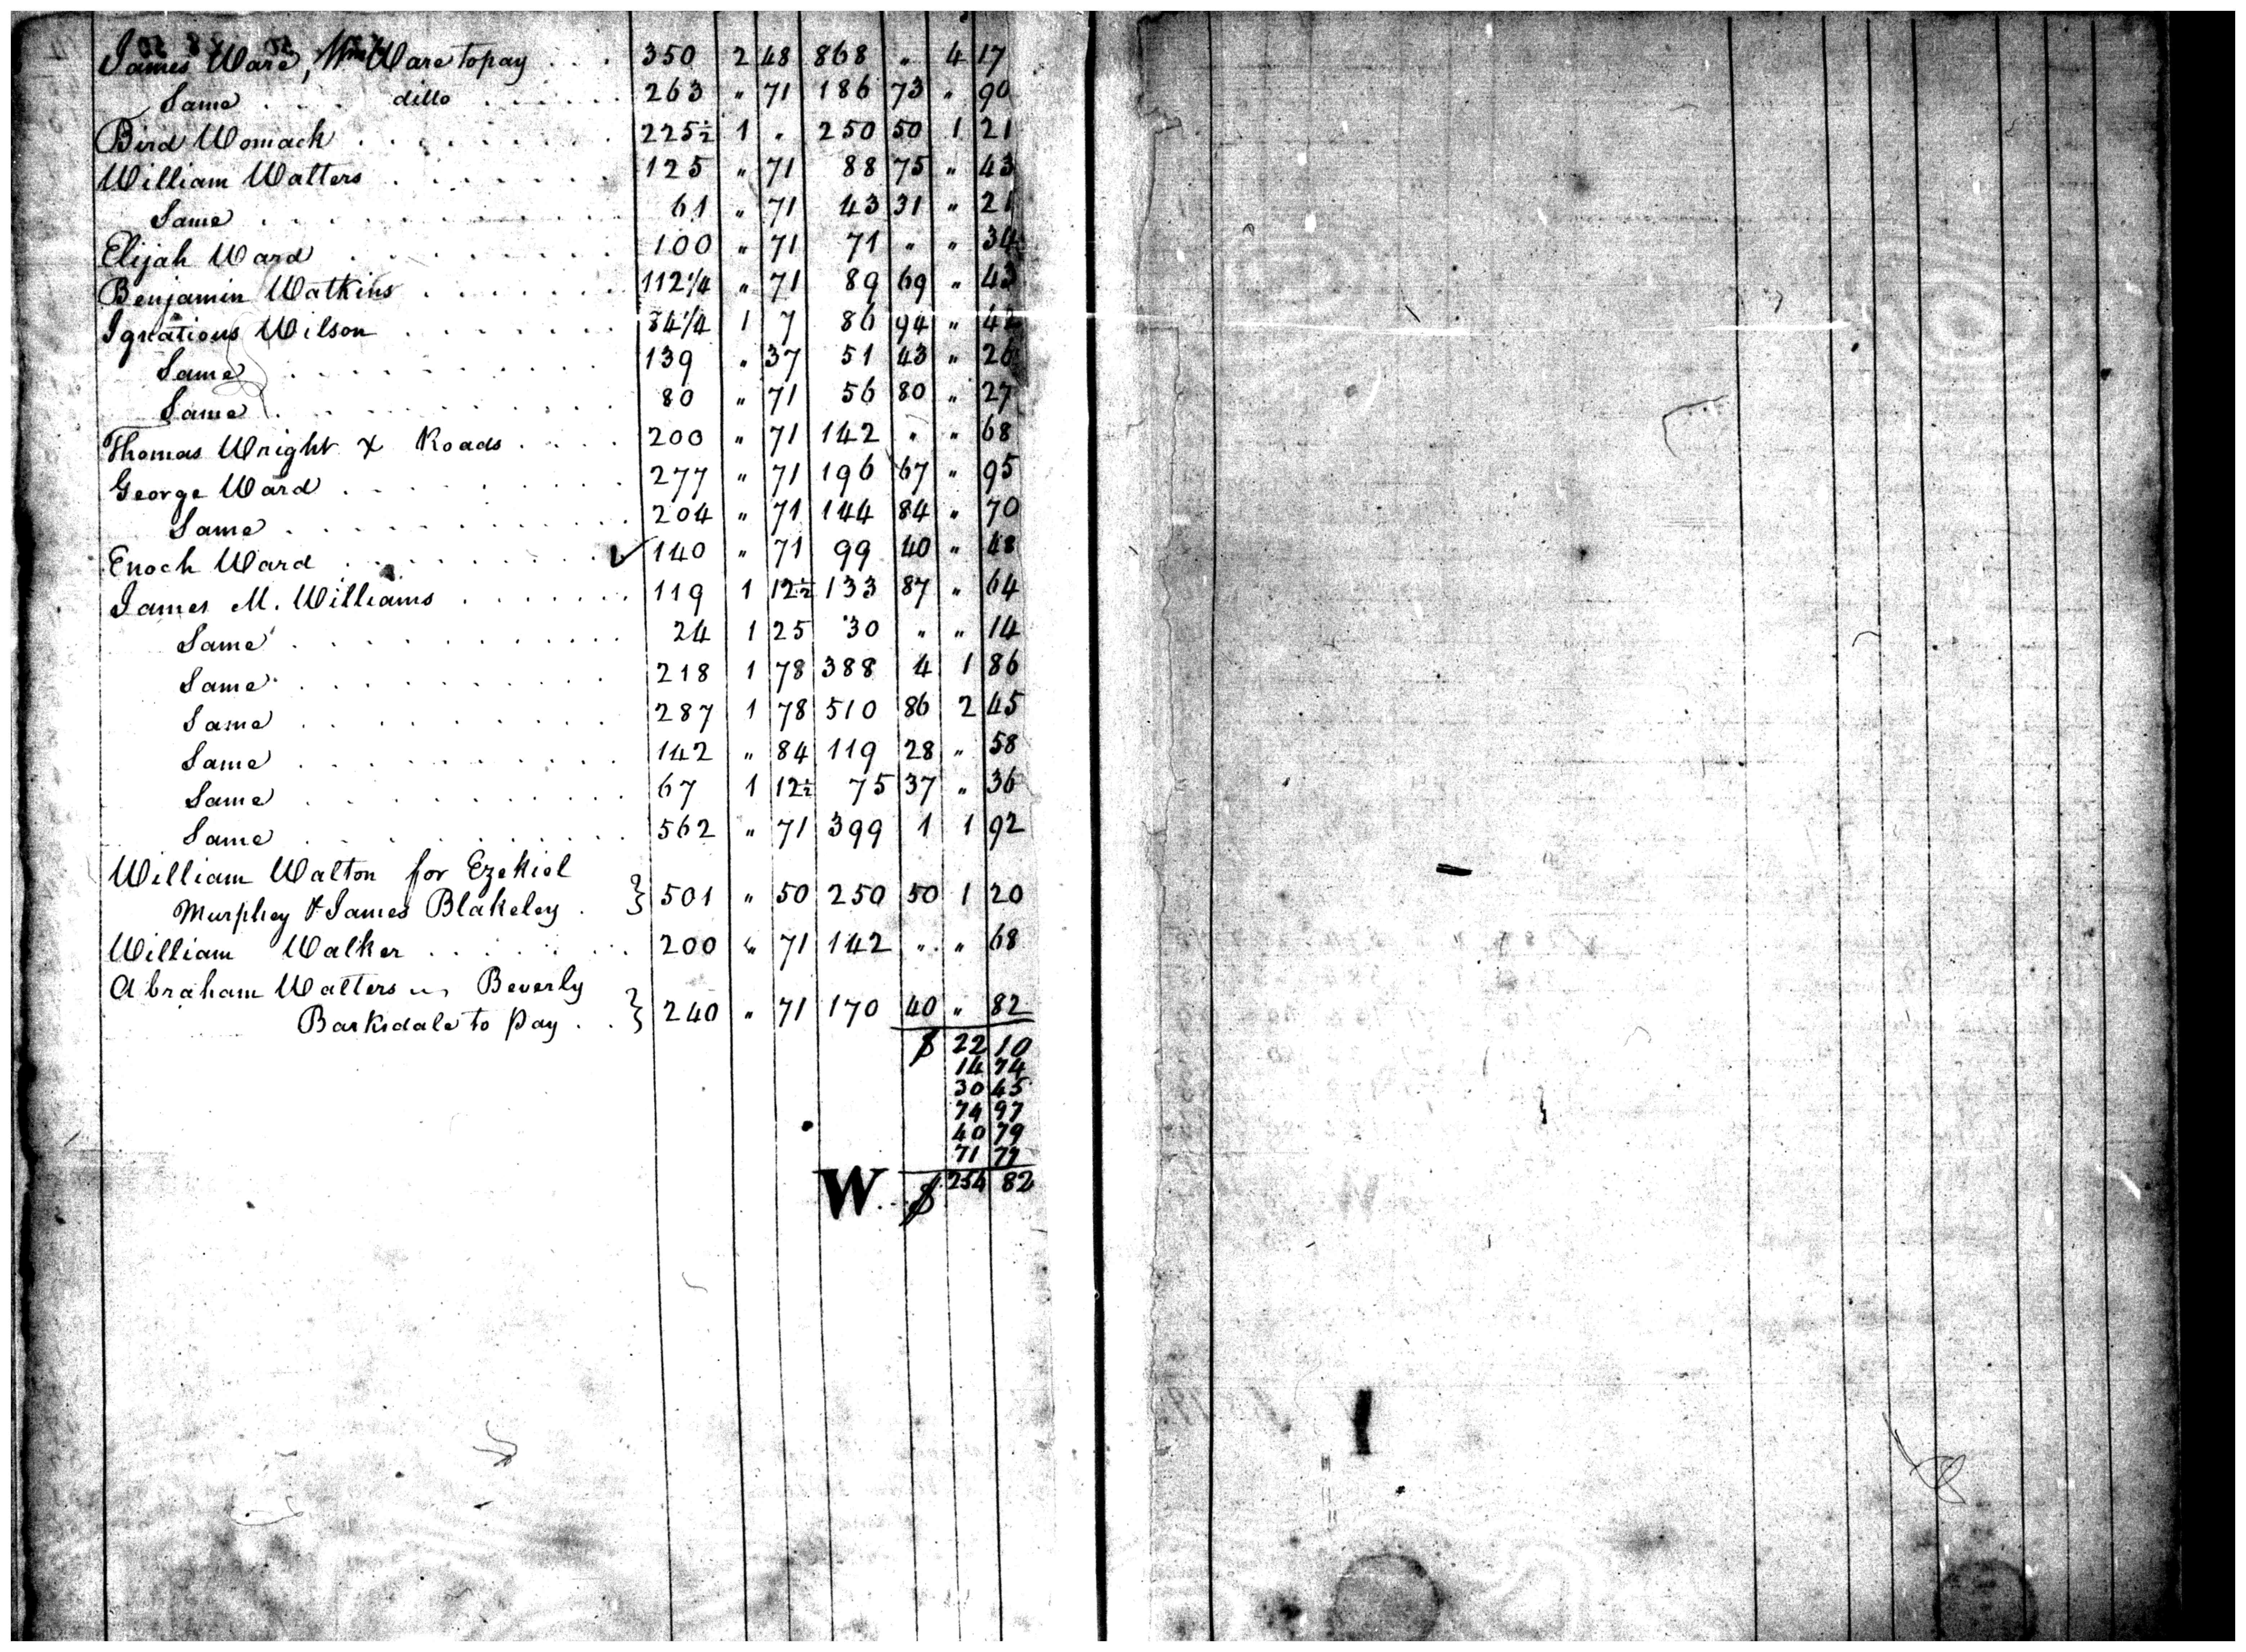 James Ware, Wm Ware to pay . . . 350 2 48 868 " 4 17
Same . . . ditto . . . . . . 263 " 71 186 73 " 90
Bird Womack . . . . . . . . 225½ 1 " 250 50 1 21
William Walters . . . . . . . 125 " 71 88 75 " 43
Same . . . . . . . . . . . 61 " 71 43 31 " 21
Elijah Ward . . . . . . . . 100 " 71 71 " " 34
Benjamin Watkins . . . . . . 112¼ " 71 89 69 " 43
Ignatious Wilson . . . . . . 84¼ 1 7 86 94 " 42
Same . . . . . . . . . . 139 " 37 51 43 " 26
Same . . . . . . . . . . 80 " 71 56 80 " 27
Thomas Wright & Roads . . . . 200 " 71 142 " " 68
George Ward . . . . . . . . . 277 " 71 196 67 " 95
Same . . . . . . . . . . . 204 " 71 144 84 " 70
Enoch Ward . . . . . . . . ✓ 140 " 71 99 40 " 48
James M. Williams . . . . . . . 119 1 12½ 133 87 " 64
Same . . . . . . . . . . . 24 1 25 30 " " 14
Same . . . . . . . . . . 218 1 78 388 4 1 86
Same . . . . . . . . . . 287 1 78 510 86 2 45
Same . . . . . . . . . . 142 " 84 119 28 " 58
Same . . . . . . . . . . 67 1 12½ 75 37 " 36
Same . . . . . . . . . . 562 " 71 399 1 1 92
William Walton for Ezekiel
Murphey & James Blakeley . } 501 " 50 250 50 1 20
William Walker . . . . . . . 200 " 71 142 " " 68
Abraham Walters Beverly
Barksdale to pay . . } 240 " 71 170 40 " 82
$ 22 10
14 74
30 45
74 97
40 79
71 77
W . . $ 254 82